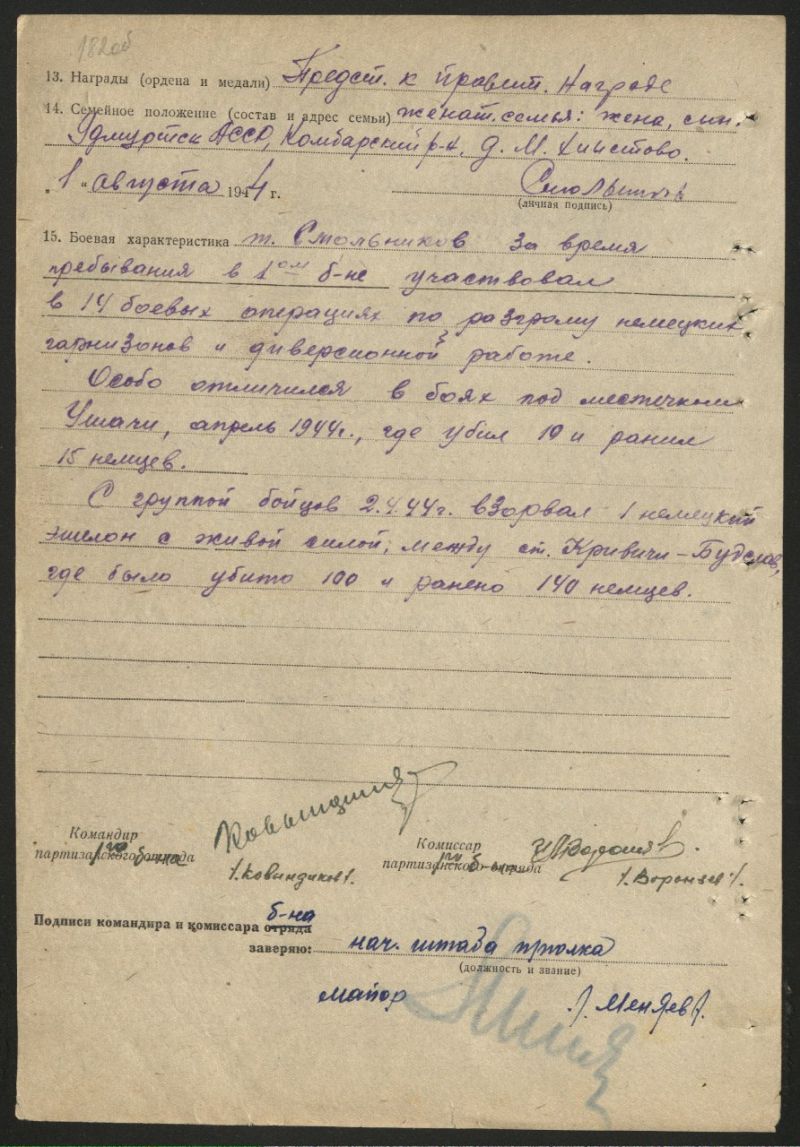 182об
13. Награды (ордена и медали) Предст. к правит. Награде
14. Семейное положение (состав и адрес семьи) женат. семья: жена, сын.
Удмуртск АССР, Камбарский р-н, д. М.
„1“ августа 1944 г.
(личная подпись)
15. Боевая характеристика т. Смольников за время
пребывания в 1ом б-не участвовал
в 14 боевых операциях по разгрому немецких
гарнизонов и диверсионной работе.
Особо отличился в боях под местечком
Ушачи, апрель 1944г., где убил 19 и ранил
15 немцев.
С группой бойцов 2.4.44г. взорвал 1 немецкий
эшелон с живой силой, между ст. Кривичи-Будслав,
где было убито 100 и ранено 140 немцев.
Командир
партизанского отряда
1го б-на
Комиссар
партизанского отряда
1го б-на
/.Воронцев./
Подписи командира и комиссара отряда б-на
заверяю: нач. штаба п/полка
(должность и звание)
майор /.Меняев/.